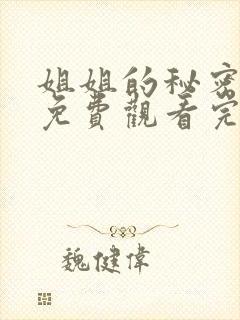 姐姐的秘密
免費觀看完
魏健偉